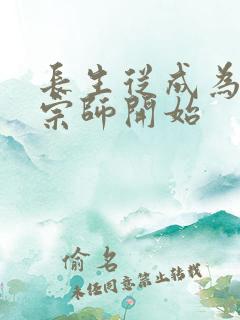 長生從成為
宗師開始
偷名
未經同意禁止轉載